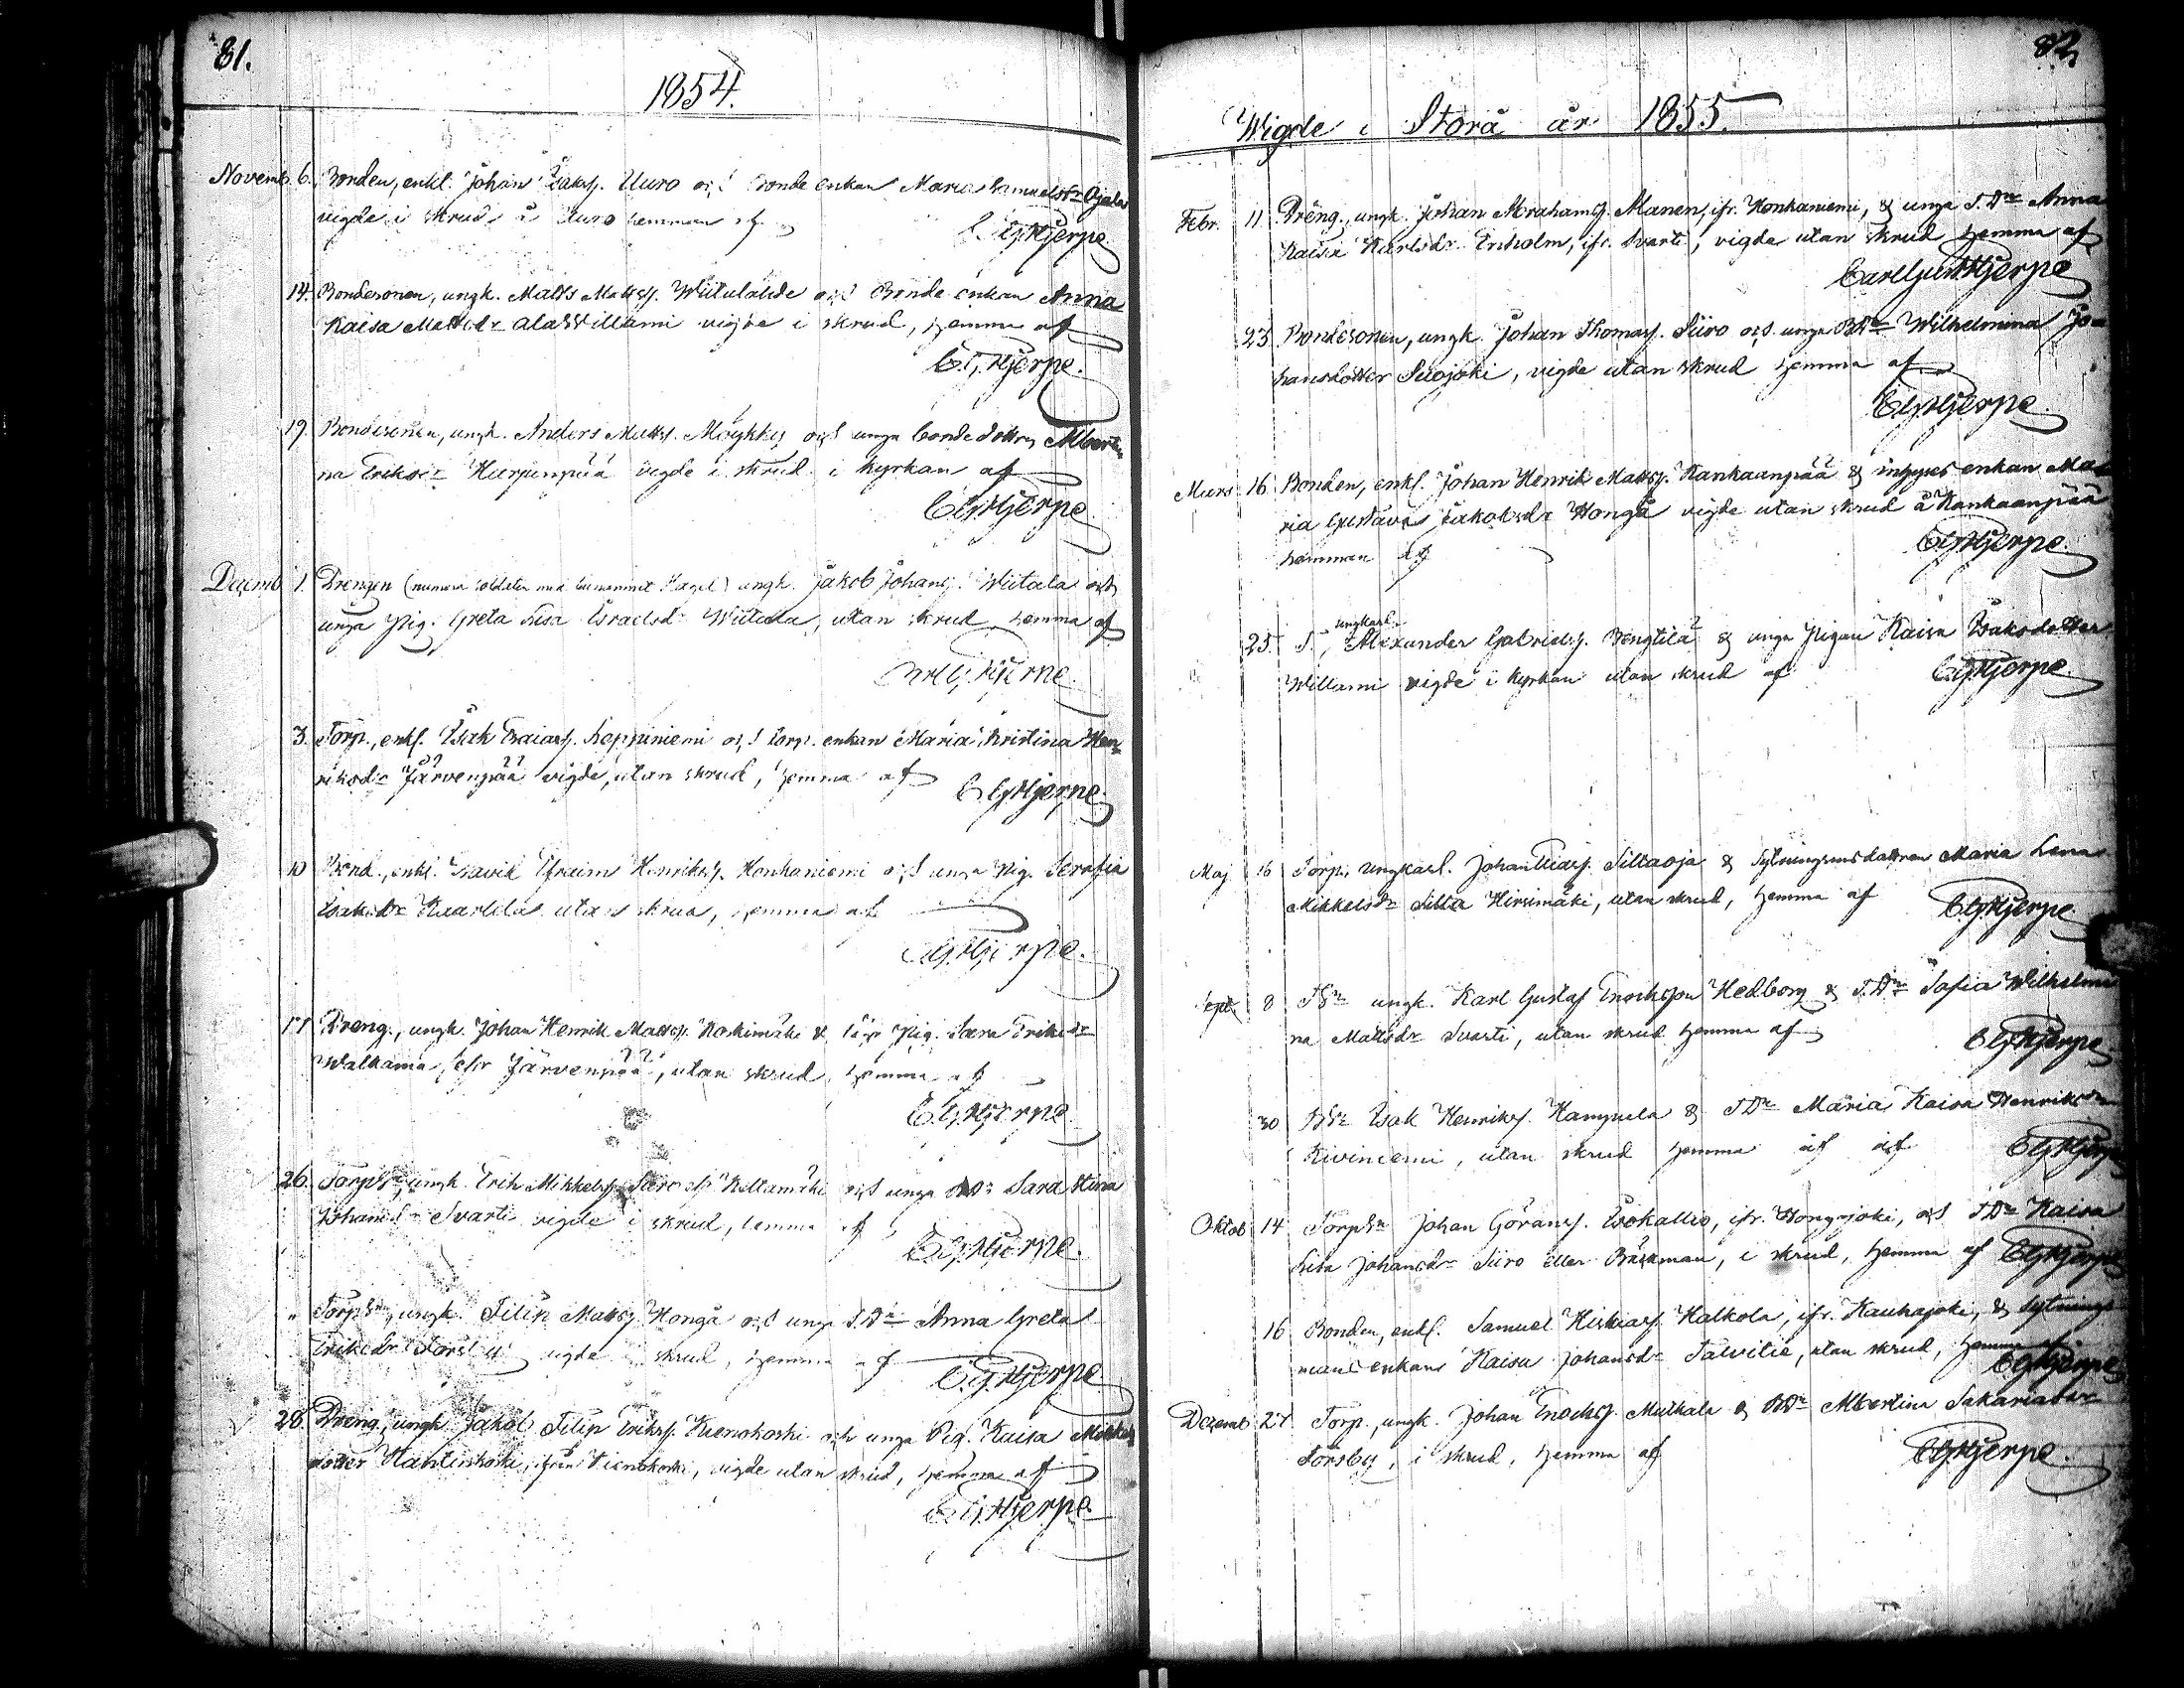 81.
1854.
Novemb. 6. Bonden, enkl. Johan Isaksf. Uuro och Bonde enkan Maria Samuelsdr Ojala
vigde i skrud å Uuro hemman af
C. G. Hjerpe.
14. Bondesonen, ungk. Matts Mattsf. Wiitalähde och Bonde enkan Anna
Kaisa Mattsdr AlaWillami vigde i skrud, hemma af
C. G. Hjerpe.
19. Bondesonen, ungk. Anders Mattsf. Möykky och unga bondedottren Alberti
na Eriksdr Harjunpää vigde i skrud i kyrkan af
C G Hjerpe
Decemb 1. Drengen (numera soldaten med binamnet Hagel) ungk. Jakob Johansf. Wiitala och
unga Pig. Greta Lisa Israelsdr Wiitala, utan skrud hemma af
Carl G. Hjerpe.
3. Torp., enkl. Isak Esaiasf. Leppiniemi och Torp. enkan Maria Kristina Hen
riksdr Järvenpää vigde, utan skrud, hemma af
C G Hjerpe.
10 Bond., enkl. Efraim Henriksf. Honkaniemi och unga Pig. Serafia
Isaksdr Kaarlela utan skrud, hemma af
C. G. Hjerpe.
17 Dreng., ungk. Johan Henrik Mattsf. Koskimäki & Pig. Sara Eriksdr
Walkama, ifr Järvenpää, utan skrud, hemma af
C. G. Hjerpe
26. TorpSn, ungk. Erik Mikkelsf. Kellamäki och unga Sara Stina
Johansdr Svarti vigde i skrud, hemma af
C. G. Hjerpe.
" TorpSn, ungk. Filip Mattsf. Honga och unga T.Dr Anna Greta
Eriksdr vigde i skrud, hemma af
C. G. Hjerpe
28. Dreng, ungk. Jakob Filip Eriksf. Kienokoski och unga Pig. Kaisa Mikkels
dotter Hantinkoski, ifrån Kienokoski, vigde utan skrud, hemma af
C G Hjerpe
82,
Wigde i Storå år 1855.
Febr. 11. Dreng., ungk. Johan Abrahamsf. Manen, ifr. Honkaniemi, & unga T.Dr Anna
Kaisa Karlsdr Enholm, ifr. Svarti, vigde utan skrud hemma af
Carl Gust Hjerpe
23. Bondesonen, ungk. Johan Thomasf. Siiro och unga BDr Wilhelmina Jo-
hansdotter Suojoki, vigde utan skrud hemma af
C G Hjerpe.
Mars 16 Bonden, enkl. Johan Henrik Mattsf. Kankaanpää & inhyses enkan Ma-
ria Gustava Jakobsdr Honga vigde utan skrud å Kankaanpää
hemman af
C G Hjerpe.
ungkarl.
25. Alexander Gabrielsf. Bengtilä & unga Pigan Kaisa Isaksdotter
Willami vigde i kyrkan utan skrud af
C. G Hjerpe.
Maj 16 Torp., ungkarl. Johan Eliasf. Sillaoja & Sytningsmsdottren Maria Lena
Mikkelsdr Silta Hirsimäki, utan skrud, hemma af
C G Hjerpe.
Sept. 8 TSn ungk. Karl Gustaf Enochsson Hedborg & T.Dr Sofia Wilhelmi
na Mattsdr Svarti, utan skrud hemma af
C G Hjerpe
30 BSn Isak Henriksf. Hangula & TDr Maria Kaisa Henriksdr
Kiviniemi, utan skrud hemma af af
C G Hjerpe
Oktob 14 TorpSn Johan Göransf. Isokallio, ifr. Hongojoki, och TDr Kaisa
Lisa Johansdr Siiro eller Bäckman, i skrud, hemma af C G Hjerpe
16 Bonden, enkl. Samuel Hiskiasf. Halkola, ifr. Kauhajoki, & Sytnings
mans enkan Kaisa Johansdr Talvitie, utan skrud, hemma
C G Hjerpe
Decemb 27. Torp., ungk. Johan Enochsf. Mulkala & BDr Albertina Sakariasdr
Forsby, i skrud, hemma af
C G Hjerpe.